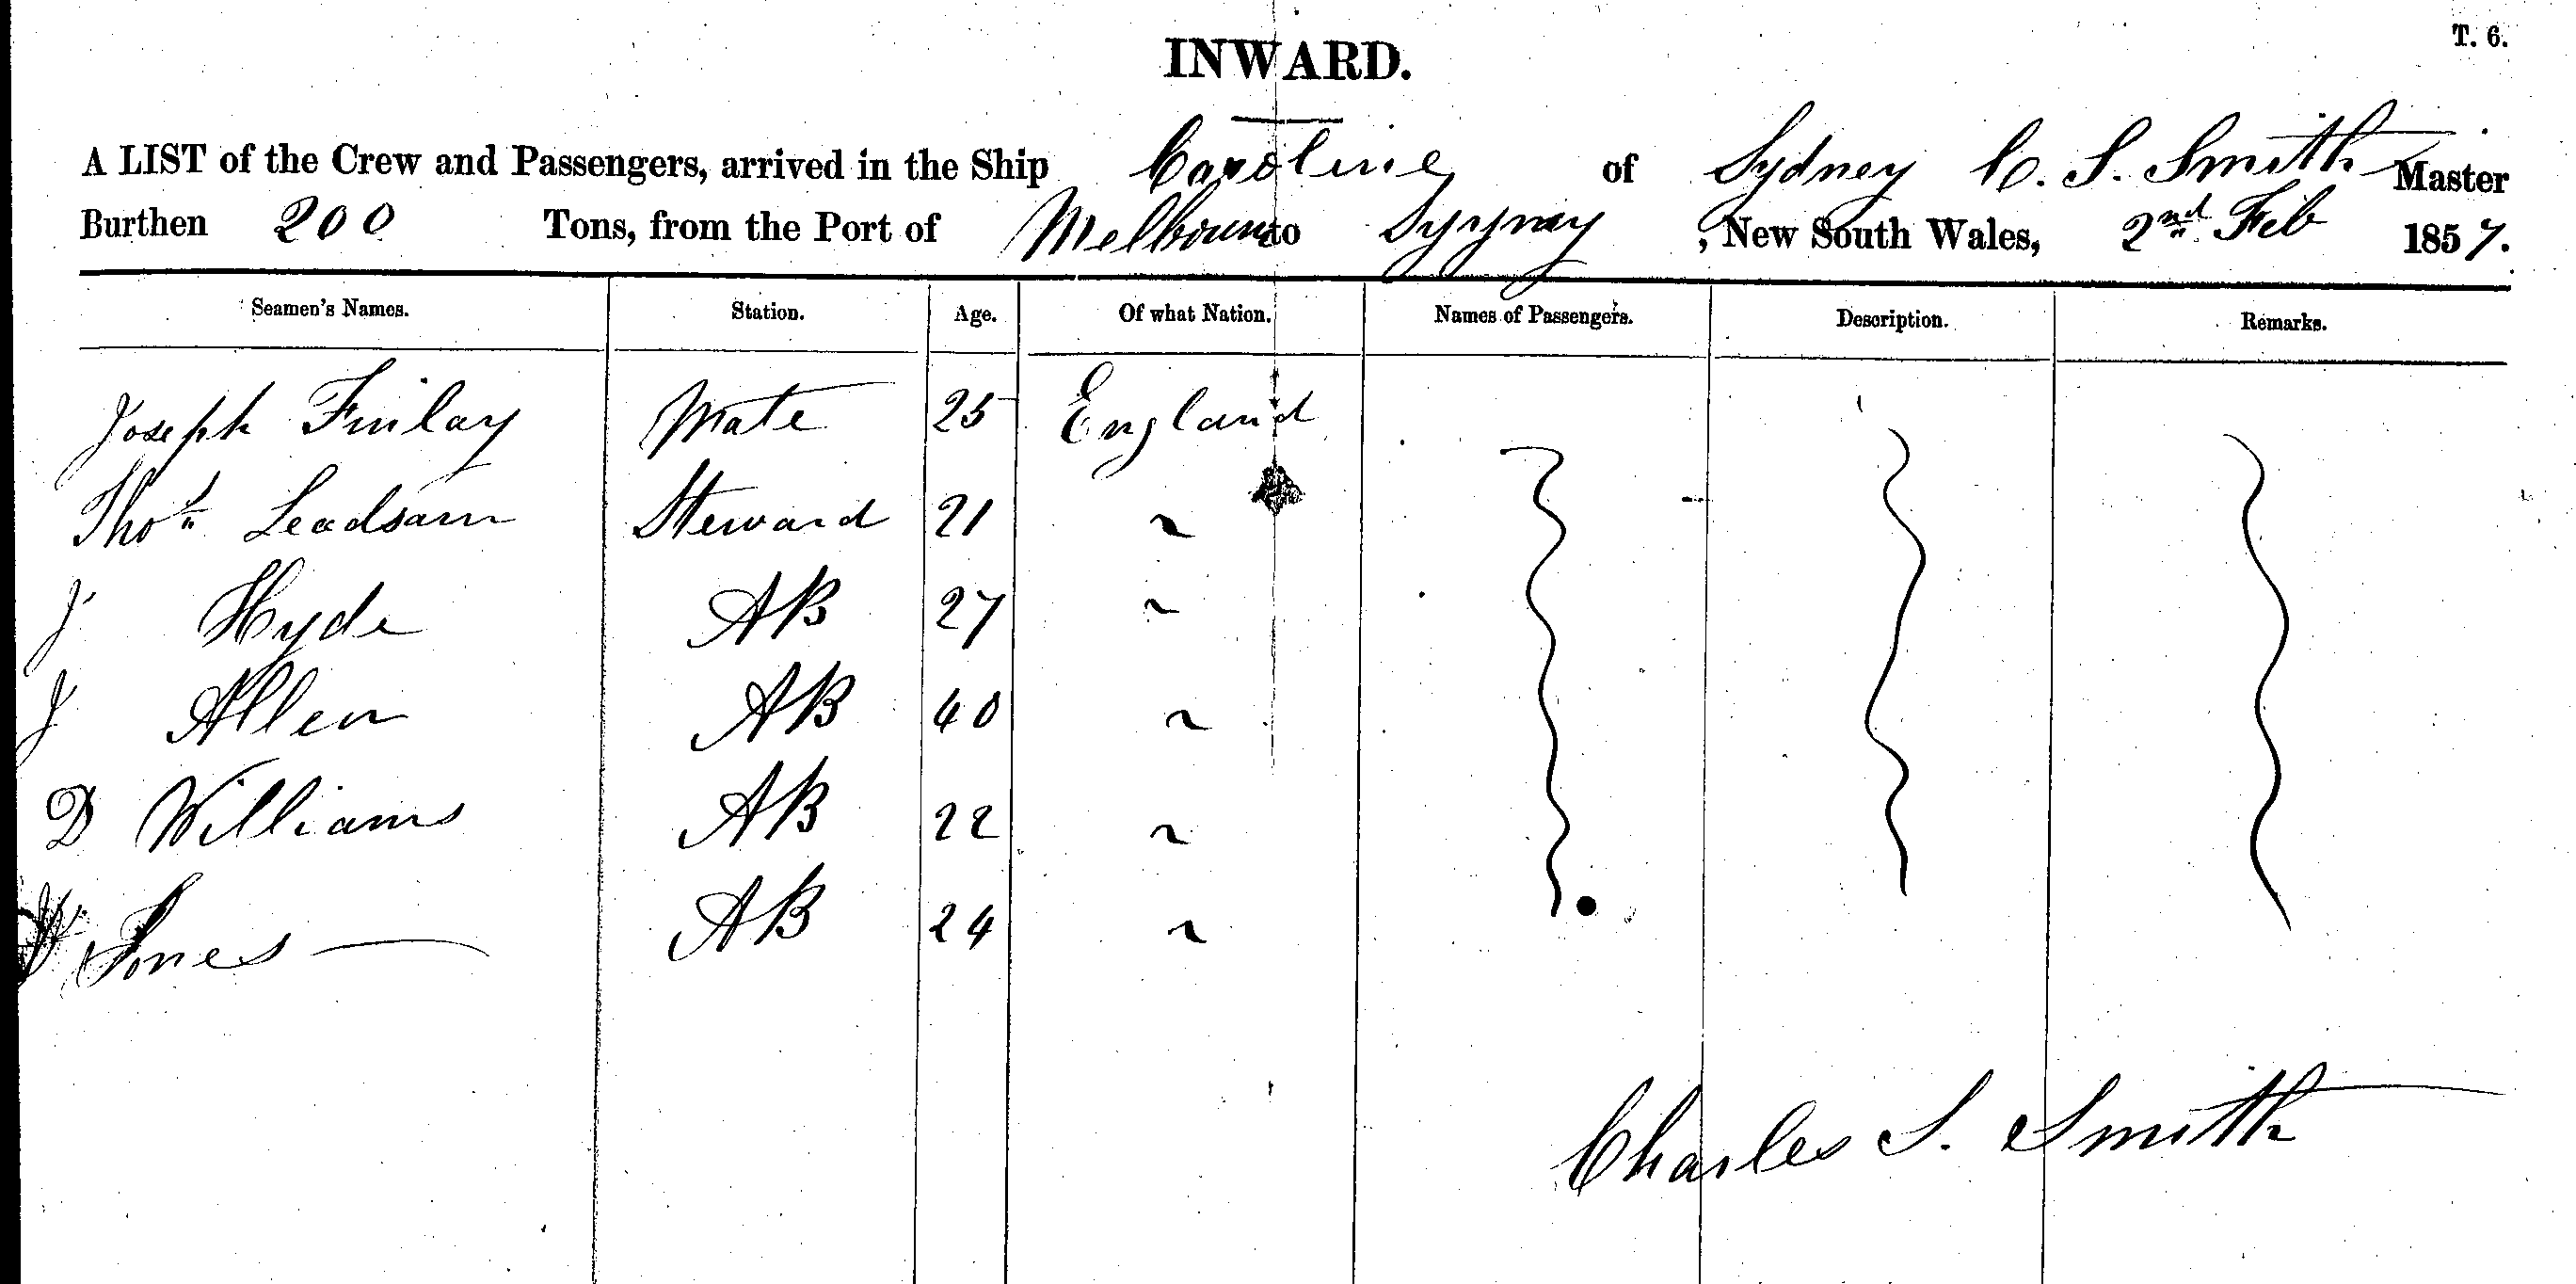 T. 6.
INWARD.
A LIST of the Crew and Passengers, arrived in the Ship Caroline of Sydney C. S. Smith Master
Burthen 200 Tons, from the Port of Melbourne to Syyney, New South Wales, 2nd Feb 1857.
Seamen's Names. Station. Age. Of what Nation. Names of Passengers. Description. Remarks.
Joseph Finlay Mate 25 England
Thos Leadsam Steward 21 "
J Hyde AB 27 "
J Allen AB 40 "
D Williams AB 22 "
Jones AB 24 "
Charles S. Smith